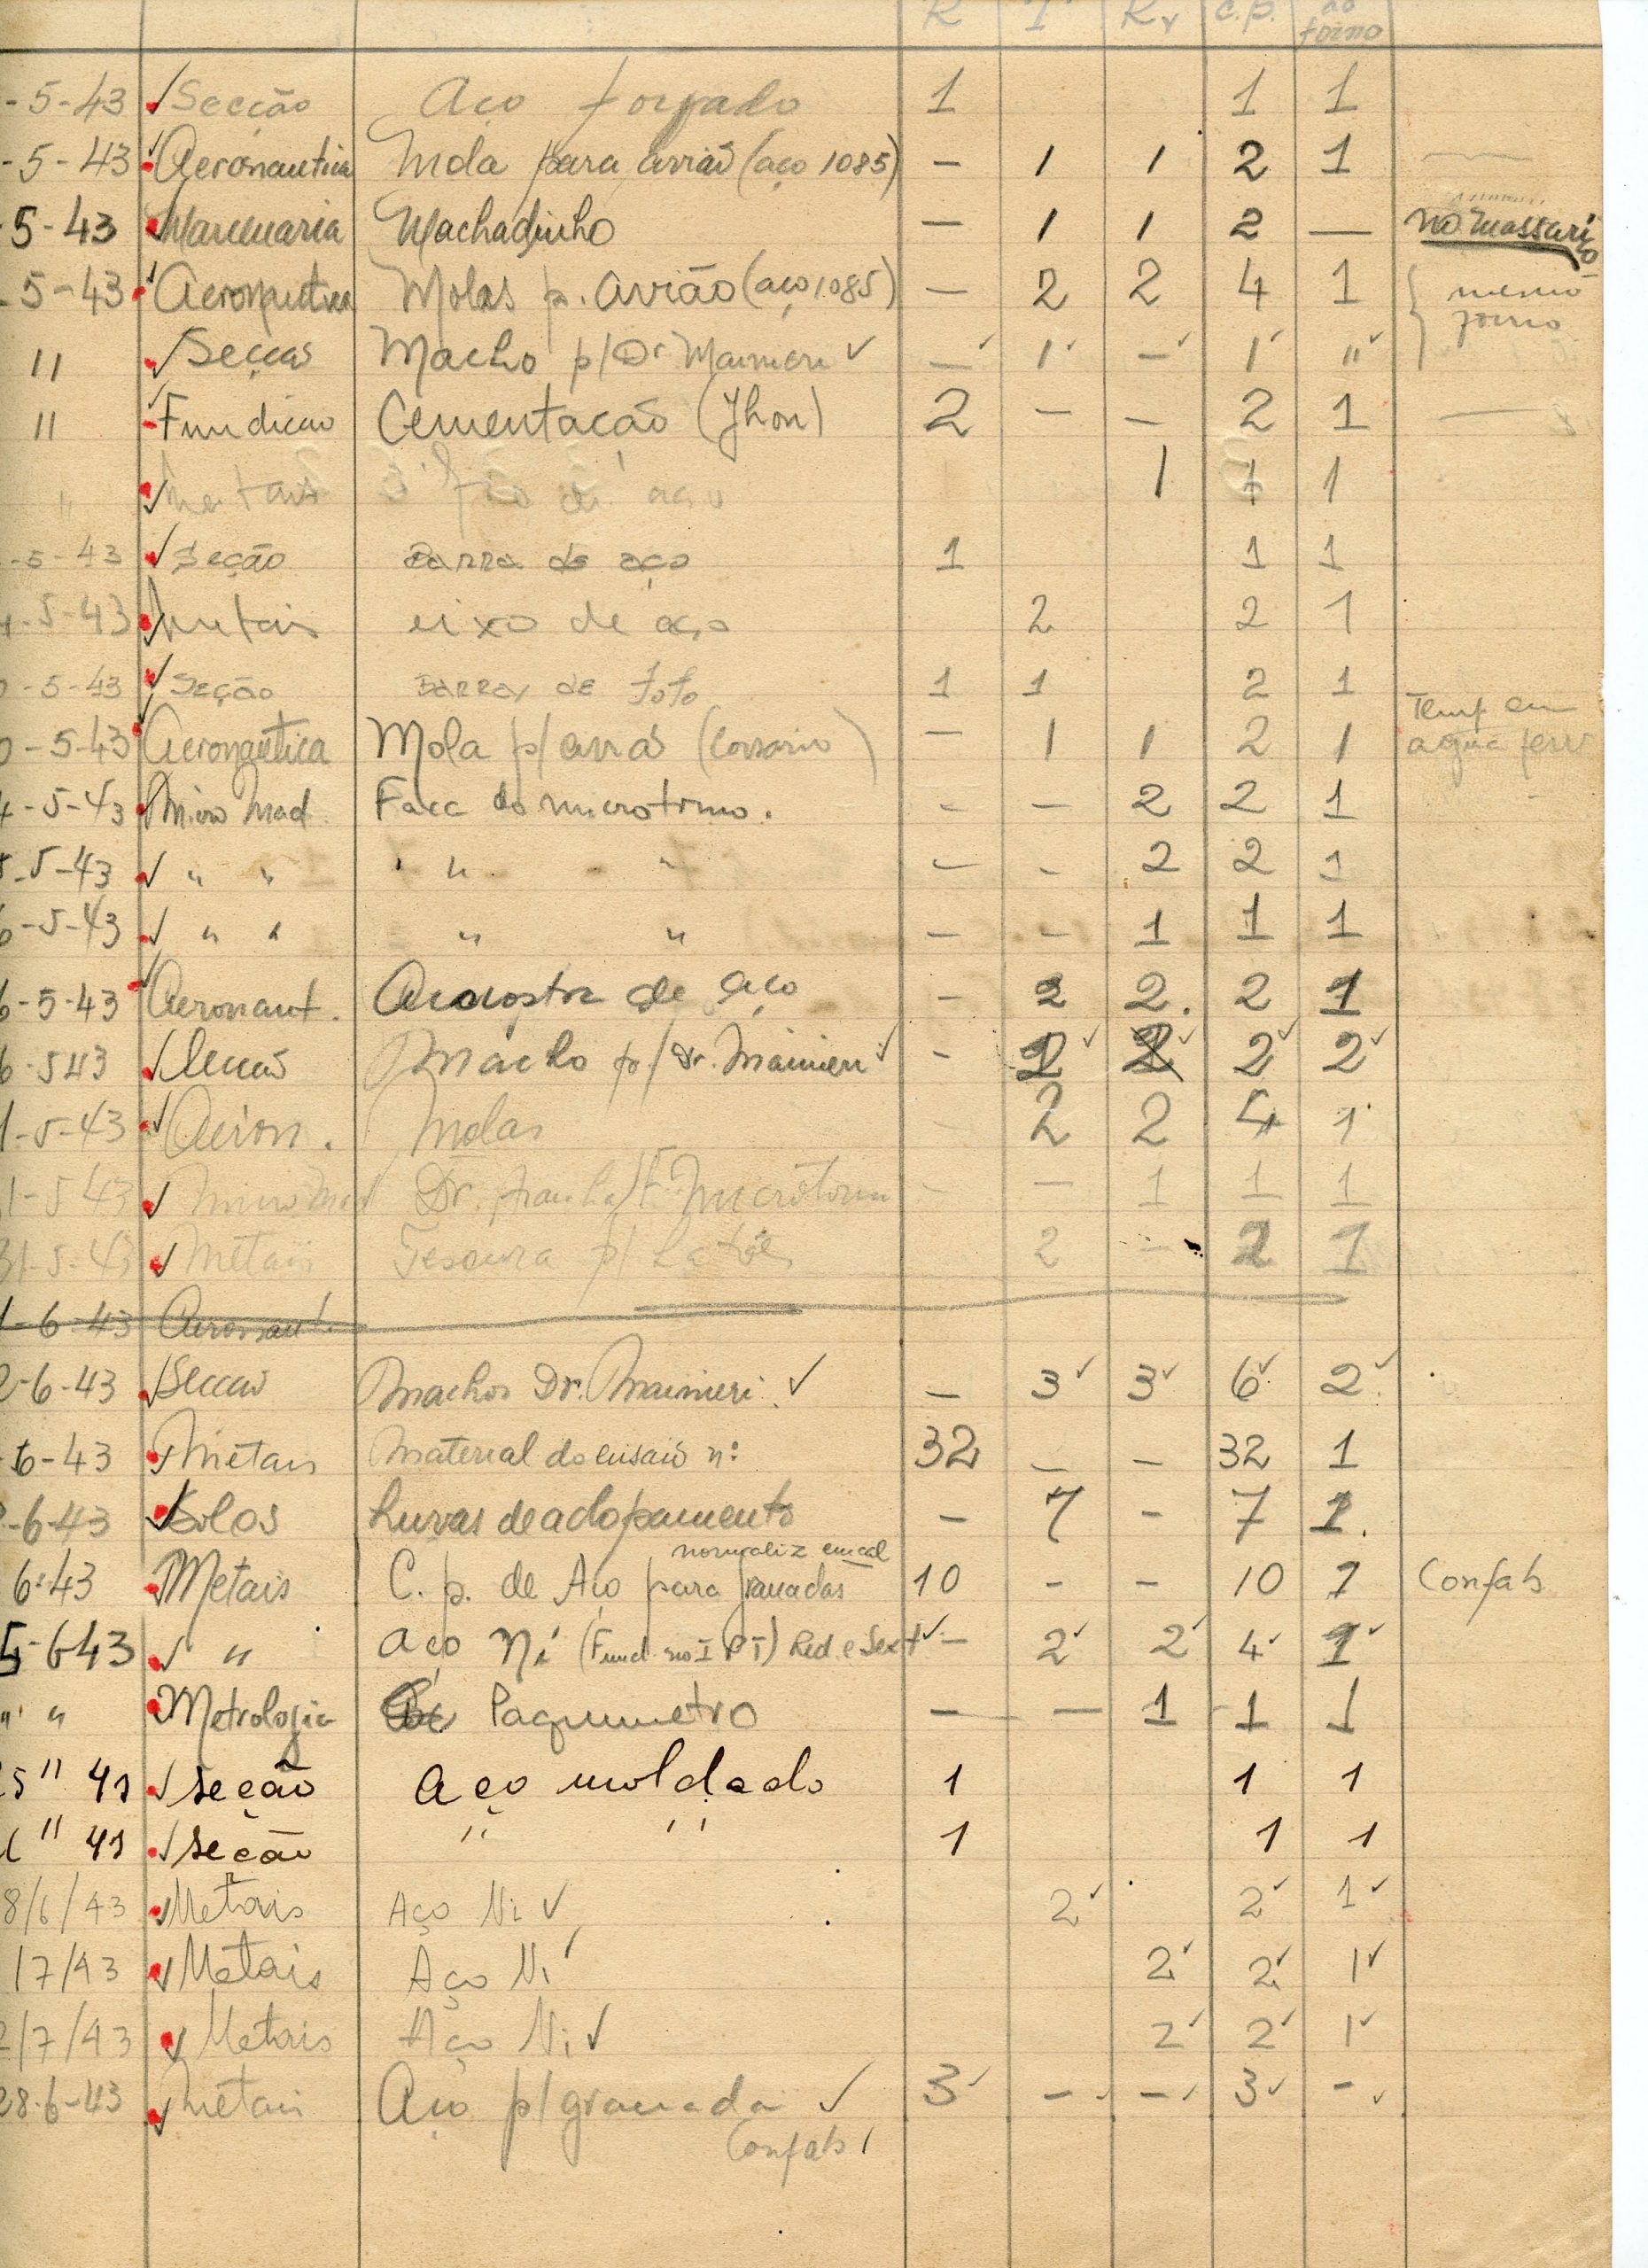 R T Rv c.p. ao forno
-5-43 Secção Aço forjado 1 1 1
-5-43 Aeronautica Mola para avião (aço 1085) — 1 1 2 1 —
5-43 Marcenaria Machadinho — 1 1 2 — no massarico
-5-43 Aeronautica Molas p. avião (aço 1085) — 2 2 4 1 mesmo forno
" Secção Macho p/ Dr Mainieri — 1 — 1 "
" Fundicao Cementação (Jhon) 2 — — 2 1 —
" metais fio de aço 1 7 1
-5-43 Seção Barra de aço 1 1 1
-5-43 metais eixo de aço 2 2 1
-5-43 Seção Barras de fofo 1 1 2 1
Temp em
-5-43 Aeronautica Mola p/ avião (Corsario) — 1 1 2 1 agua ferv
4-5-43 Micro Mad. Faca do microtomo. - — 2 2 1
-5-43 " " " " — - 2 2 1
6-5-43 " " " " — - 1 1 1
6-5-43 Aeronaut. Amostra de aço - 2 2. 2 1
6-543 Seccão Macho p/ Dr. Mainieri - 2 2 2
1-5-43 Aeron. Molas 2 2 4 1
1-5 43 Micro Mad Dr. F. Microtomo - — 1 1 1
31-5-43 Metais Tesoura p/ Latões 2 - 2 1
1-6-43 Aeronaut.
2-6-43 Seccao Machos Dr. Mainieri — 3 3 6 2
-6-43 Metais Material do ensaio nº 32 — - 32 1
-6-43 Solos Luvas de aclopamento — 7 - 7 1.
normaliz em cal
6-43 Metais C. p. de Aço para granadas 10 - - 10 1 Confab
5-6-43 " aço Ni (Fund. no I P T) Red. e Sext — 2 2 4 1
" " Metrologia Paquimetro — — 1 1 1
5 " 43 seção aço moldado 1 1 1
" 43 seção " " 1 1 1
8/6/43 Metais Aço Ni 2 2 1
/7/43 Metais Aço Ni 2 2 1
2/7/43 Metais Aço Ni 2 2 1
28-6-43 Metais Aço p/ granada 3 — — 3 -
Confab